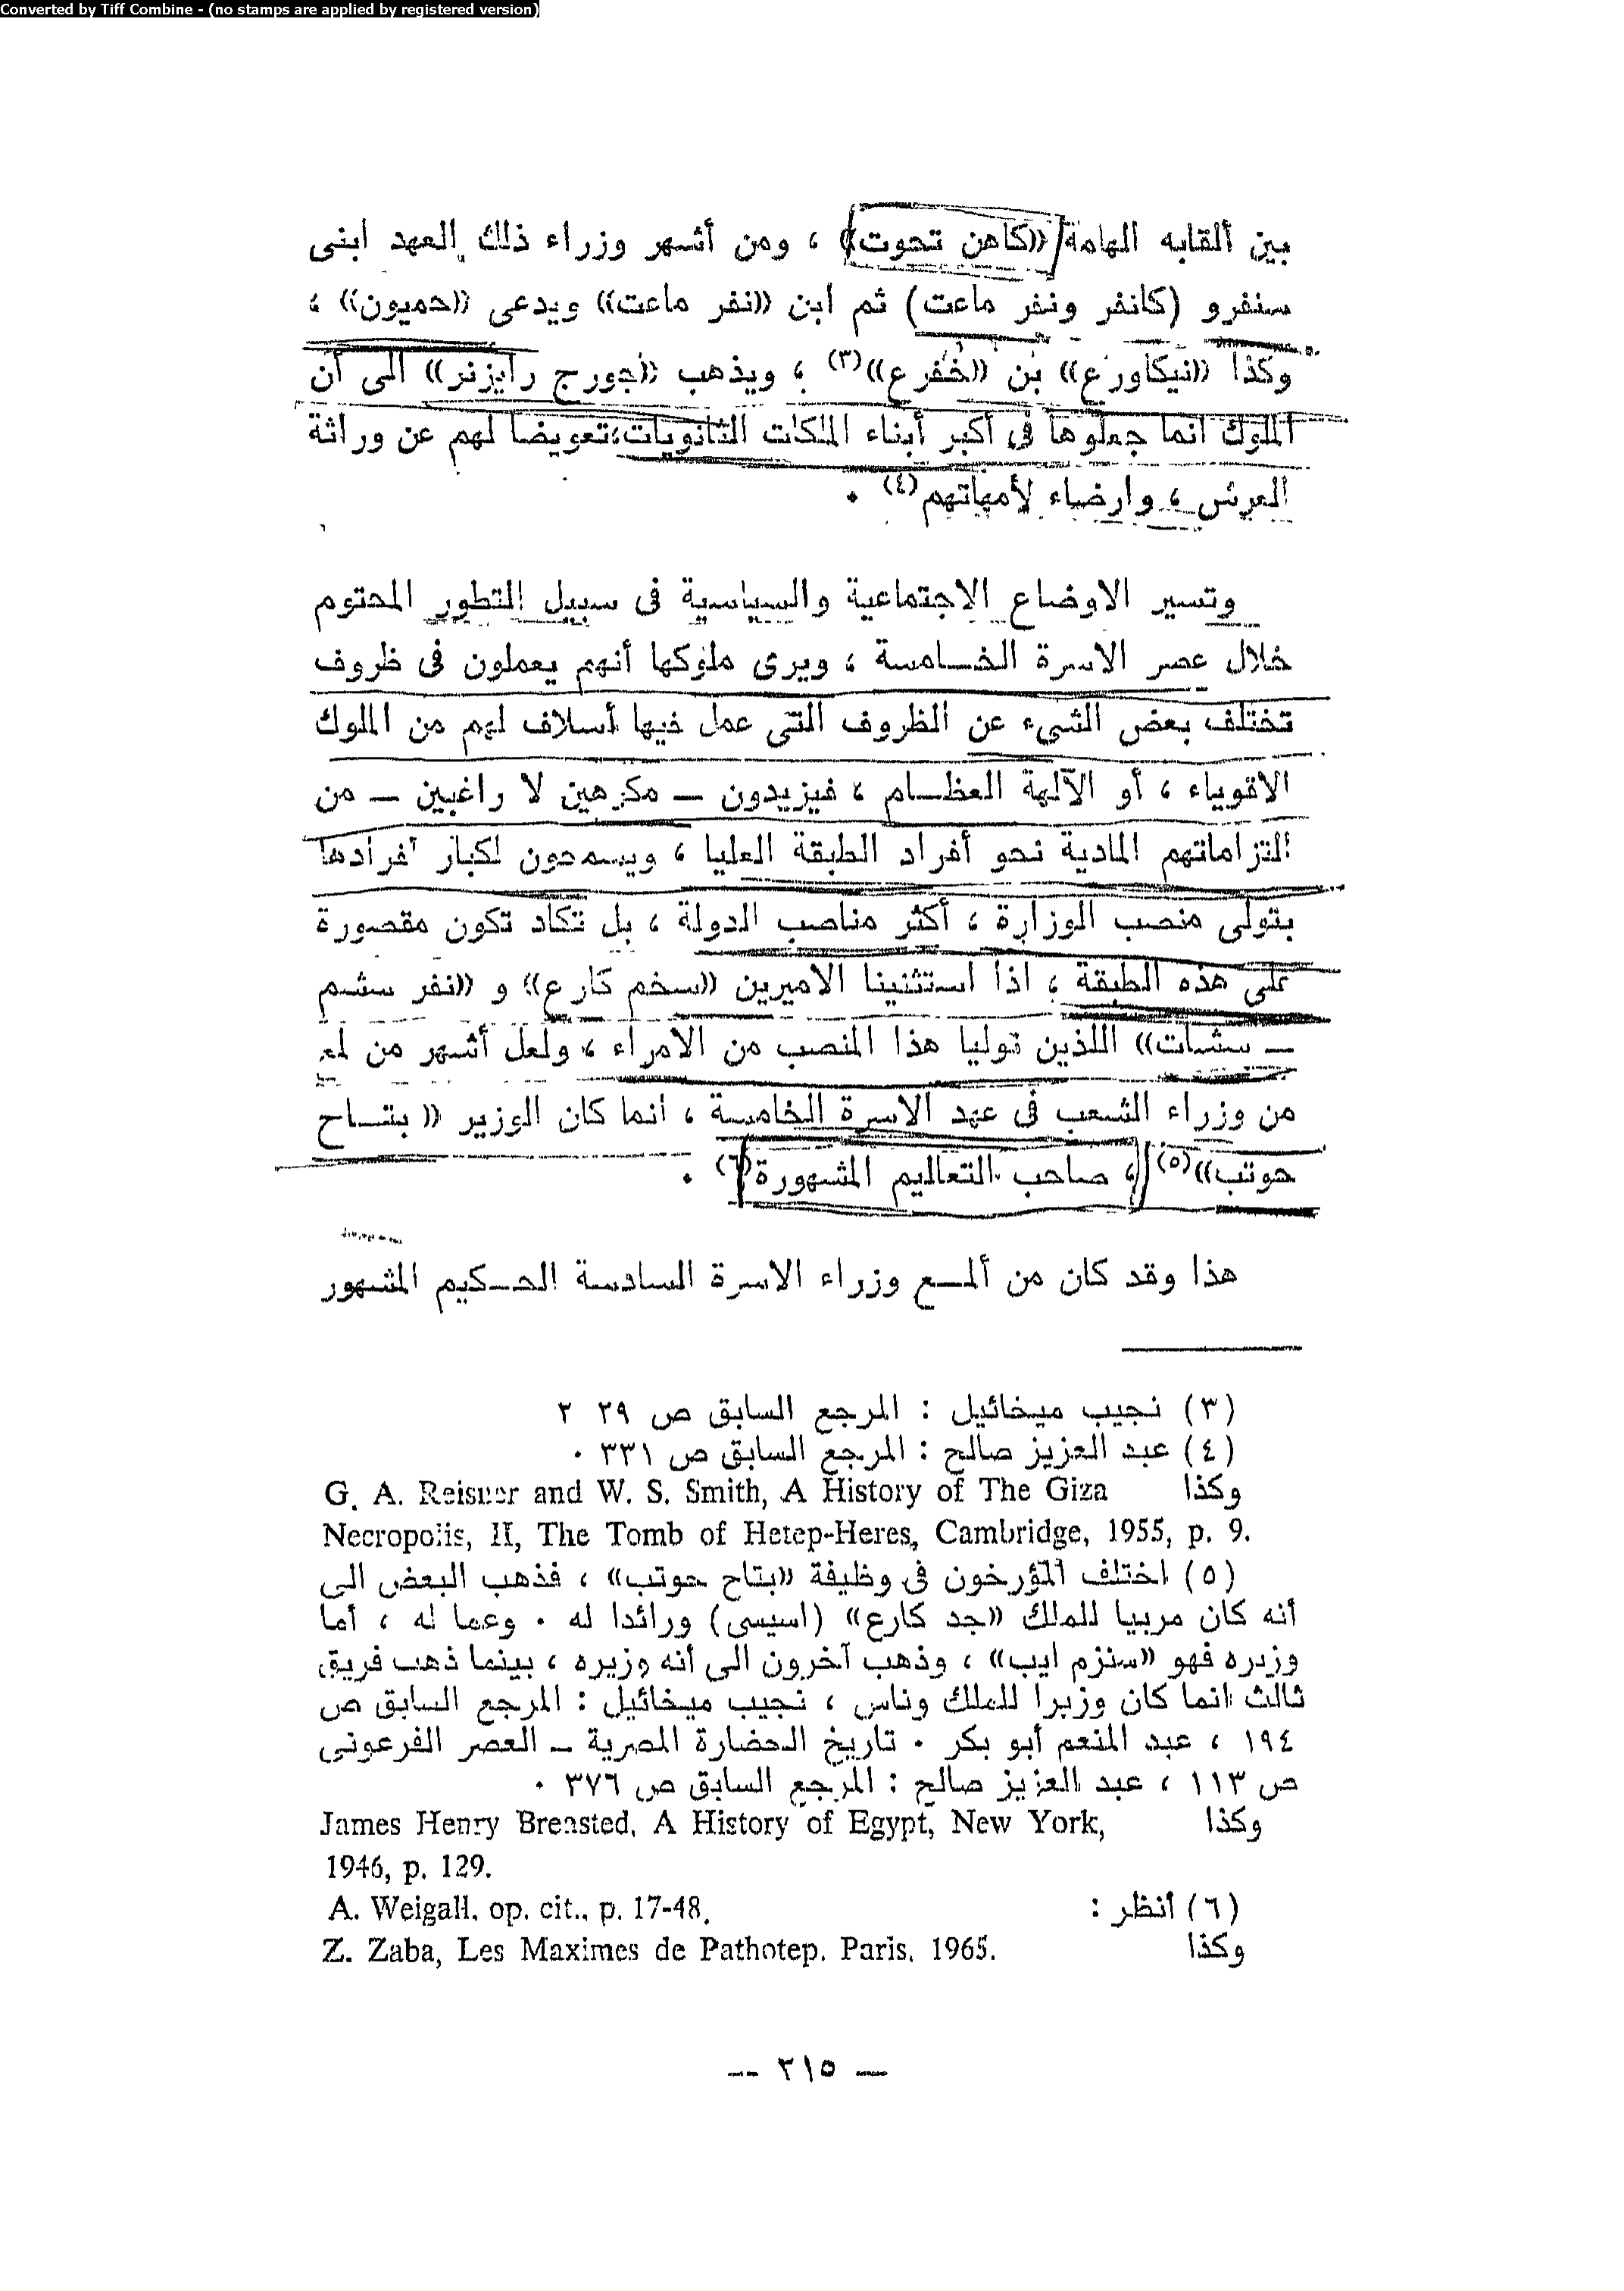 Converted by Tiff Combine - (no stamps are applied by registered version)
بين ألقابه الهامة «كاهن تحوت» ، ومن أشهر وزراء ذلك العهد ابنى
سنفرو (كانفر ونفر ماعت) ثم ابن «نفر ماعت» ويدعى «حميون» ،
وكذا «نيكاورع» بن «خفرع»(٣) ، ويذهب «جورج رايزنر» الى أن
الملوك انما جعلوها فى أكبر أبناء الملكات الثانويات،تعويضا لهم عن وراثة
العرش ، وارضاء لأمهاتهم(٤) .
وتسير الاوضاع الاجتماعية والسياسية فى سبيل التطور المحتوم
خلال عصر الاسرة الخامسة ، ويرى ملوكها أنهم يعملون فى ظروف
تختلف بعض الشىء عن الظروف التى عمل فيها أسلاف لهم من الملوك
الاقوياء ، أو الآلهة العظام ، فيزيدون – مكرهين لا راغبين – من
التزاماتهم المادية نحو أفراد الطبقة العليا ، ويسمحون لكبار أفرادها
بتولى منصب الوزارة ، أكثر مناصب الدولة ، بل تكاد تكون مقصورة
على هذه الطبقة ، اذا استثنينا الاميرين «سخم كارع» و «نفر سشم
– سشات» اللذين توليا هذا المنصب من الامراء ، ولعل أشهر من لمع
من وزراء الشعب فى عهد الاسرة الخامسة ، انما كان الوزير « بتاح
حوتب»(٥) ، صاحب التعاليم المشهورة(٦) .
هذا وقد كان من ألمع وزراء الاسرة السادسة الحكيم المشهور
(٣) نجيب ميخائيل : المرجع السابق ص ٢٩ ٢
(٤) عبد العزيز صالح : المرجع السابق ص ٣٣١ .
وكذا G. A. Reisner and W. S. Smith, A History of The Giza
Necropolis, II, The Tomb of Hetep-Heres, Cambridge, 1955, p. 9.
(٥) اختلف المؤرخون فى وظيفة «بتاح حوتب» ، فذهب البعض الى
أنه كان مربيا للملك «جد كارع» (اسيسى) ورائدا له . وعما له ، أما
وزيره فهو «سنزم ايب» ، وذهب آخرون الى أنه وزيره ، بينما ذهب فريق
ثالث انما كان وزيرا للملك وناس ، نجيب ميخائيل : المرجع السابق ص
١٩٤ ، عبد المنعم أبو بكر . تاريخ الحضارة المصرية – العصر الفرعونى
ص ١١٣ ، عبد العزيز صالح : المرجع السابق ص ٣٧٦ .
وكذا James Henry Breasted, A History of Egypt, New York,
1946, p. 129.
(٦) أنظر : A. Weigall, op. cit., p. 17-48.
وكذا Z. Zaba, Les Maximes de Pathotep. Paris, 1965.
– ٢١٥ –